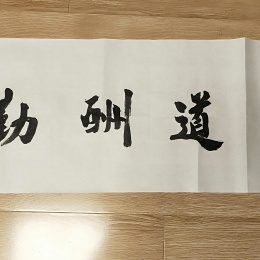 道酬勤